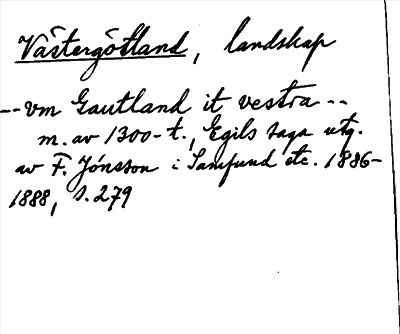 Västergötland, landskap
-- vm Gautland it vestra --
m. av 1300-t., Egils saga utg.
av F. Jónsson i Samfund etc. 1886-
1888, s. 279